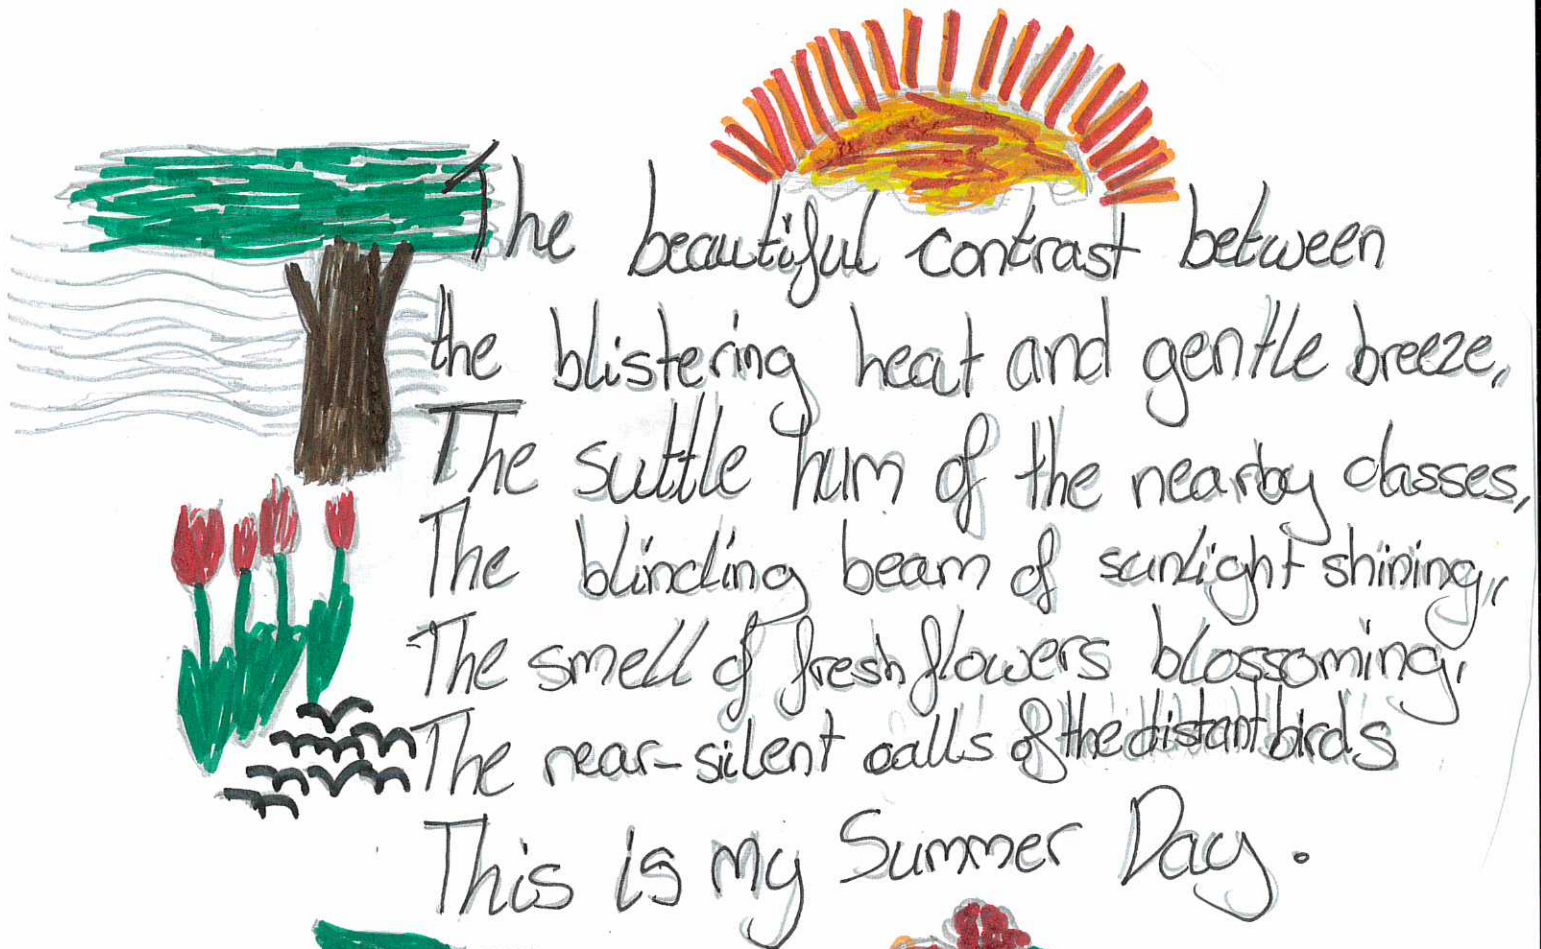 The beautiful contrast between
the blistering heat and gentle breeze,
The suttle hum of the nearby classes,
The blinding beam of sunlight shining,
The smell of fresh flowers blossoming,
The near-silent calls of the distant birds
This is my Summer Day.